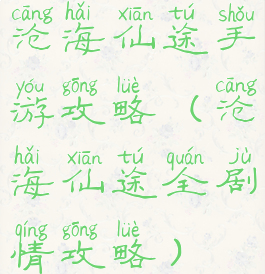 cāng hǎi xiān tú shǒu
沧海仙途手
yóu gōng lüè cāng
游攻略（沧
hǎi xiān tú quán jù
海仙途全剧
qíng gōng lüè
情攻略）